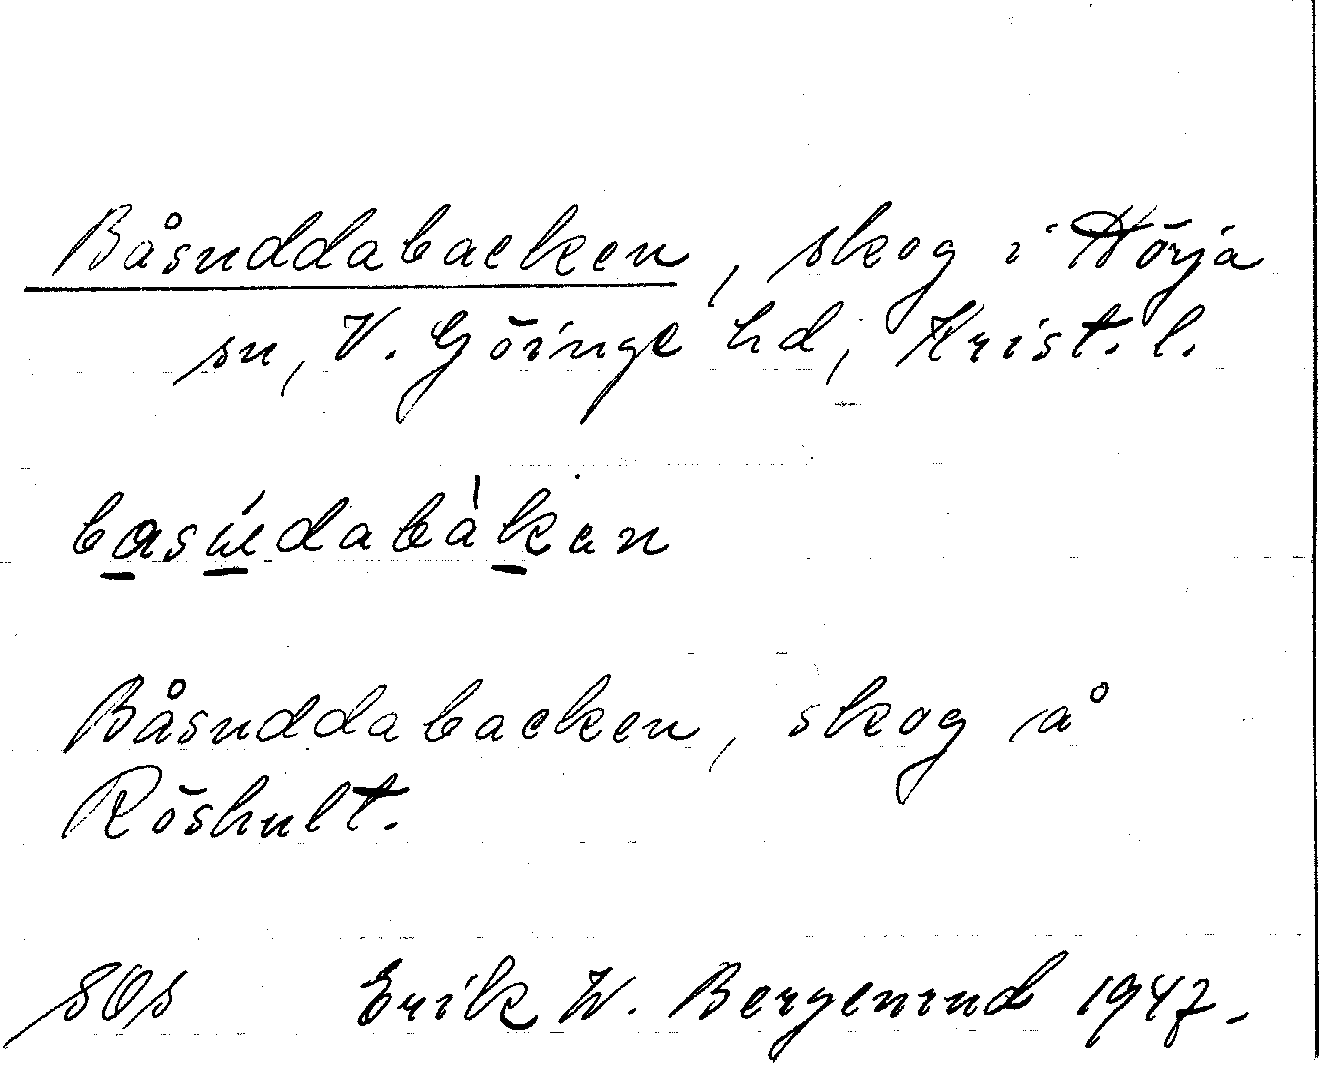 Båsuddabacken, skog i Hörja
sn, V. Göinge hd, Krist. l.
basúdabàkan
Båsuddabacken, skog å
Röshult.
SOS Erik W. Bergenrud 1947.